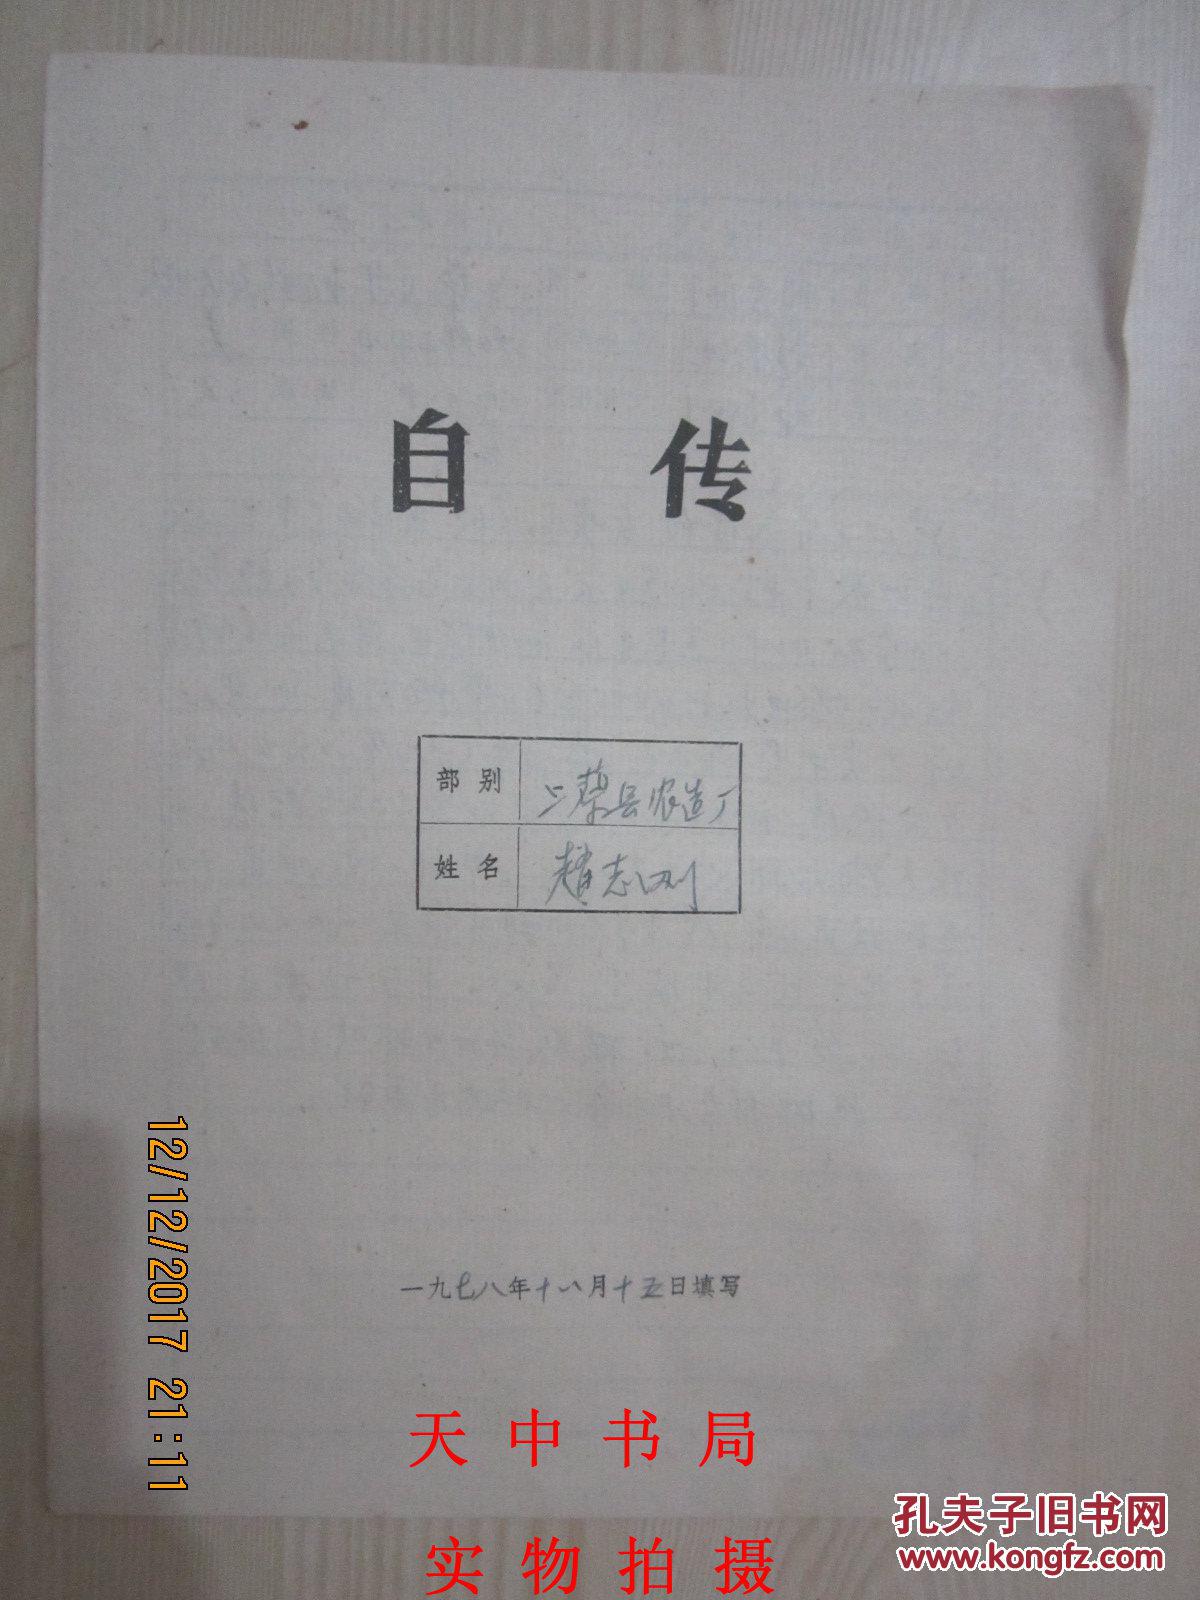 自 传
部别 上蔡县农造厂
姓名 赵志刚
一九七八年十八月十五日填写
12/12/2017 21:11
天中书局
孔夫子旧书网
www.kongfz.com
实物拍摄